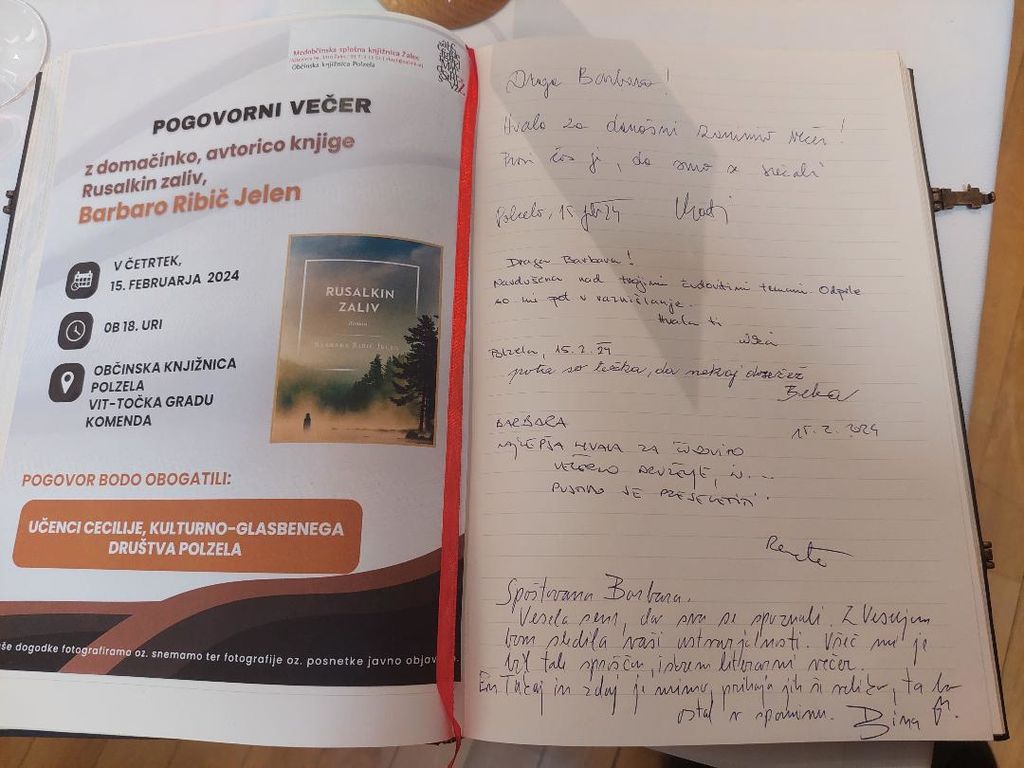 Medobčinska splošna knjižnica Žalec
Občinska knjižnica Polzela
POGOVORNI VEČER
z domačinko, avtorico knjige
Rusalkin zaliv,
Barbaro Ribič Jelen
V ČETRTEK,
15. FEBRUARJA 2024
OB 18. URI
OBČINSKA KNJIŽNICA
POLZELA
VIT-TOČKA GRADU
KOMENDA
RUSALKIN
ZALIV
Roman
BARBARA RIBIČ JELEN
POGOVOR BODO OBOGATILI:
UČENCI CECILIJE, KULTURNO-GLASBENEGA
DRUŠTVA POLZELA
še dogodke fotografiramo oz. snemamo ter fotografije oz. posnetke javno objav
Draga Barbara!
Hvala za današnji zanimiv večer!
čas je, da smo se srečali
Polzela, 15 feb 24
Draga Barbara!
Navdušena nad tvojimi čudovitimi temami. Odprle
so mi pot v razmišljanje.
Hvala ti
Polzela, 15.2.24
pota so težka, da nekaj dosežeš
BARBARA
15.2.2024
NAJLEPŠA HVALA ZA ČUDOVITO
VEČERNO DRUŽENJE, IN...
PUSTIMO SE PRESENETITI
Renata
Spoštovana Barbara.
Vesela sem, da sva se spoznali. Z Veseljem
bom sledila vaši ustvarjalnosti. Všeč mi je
bil tale sproščen, iskren literarni večer.
En Tukaj in zdaj je mimo, prihaja jih še veliko, ta bo
ostal v spominu.